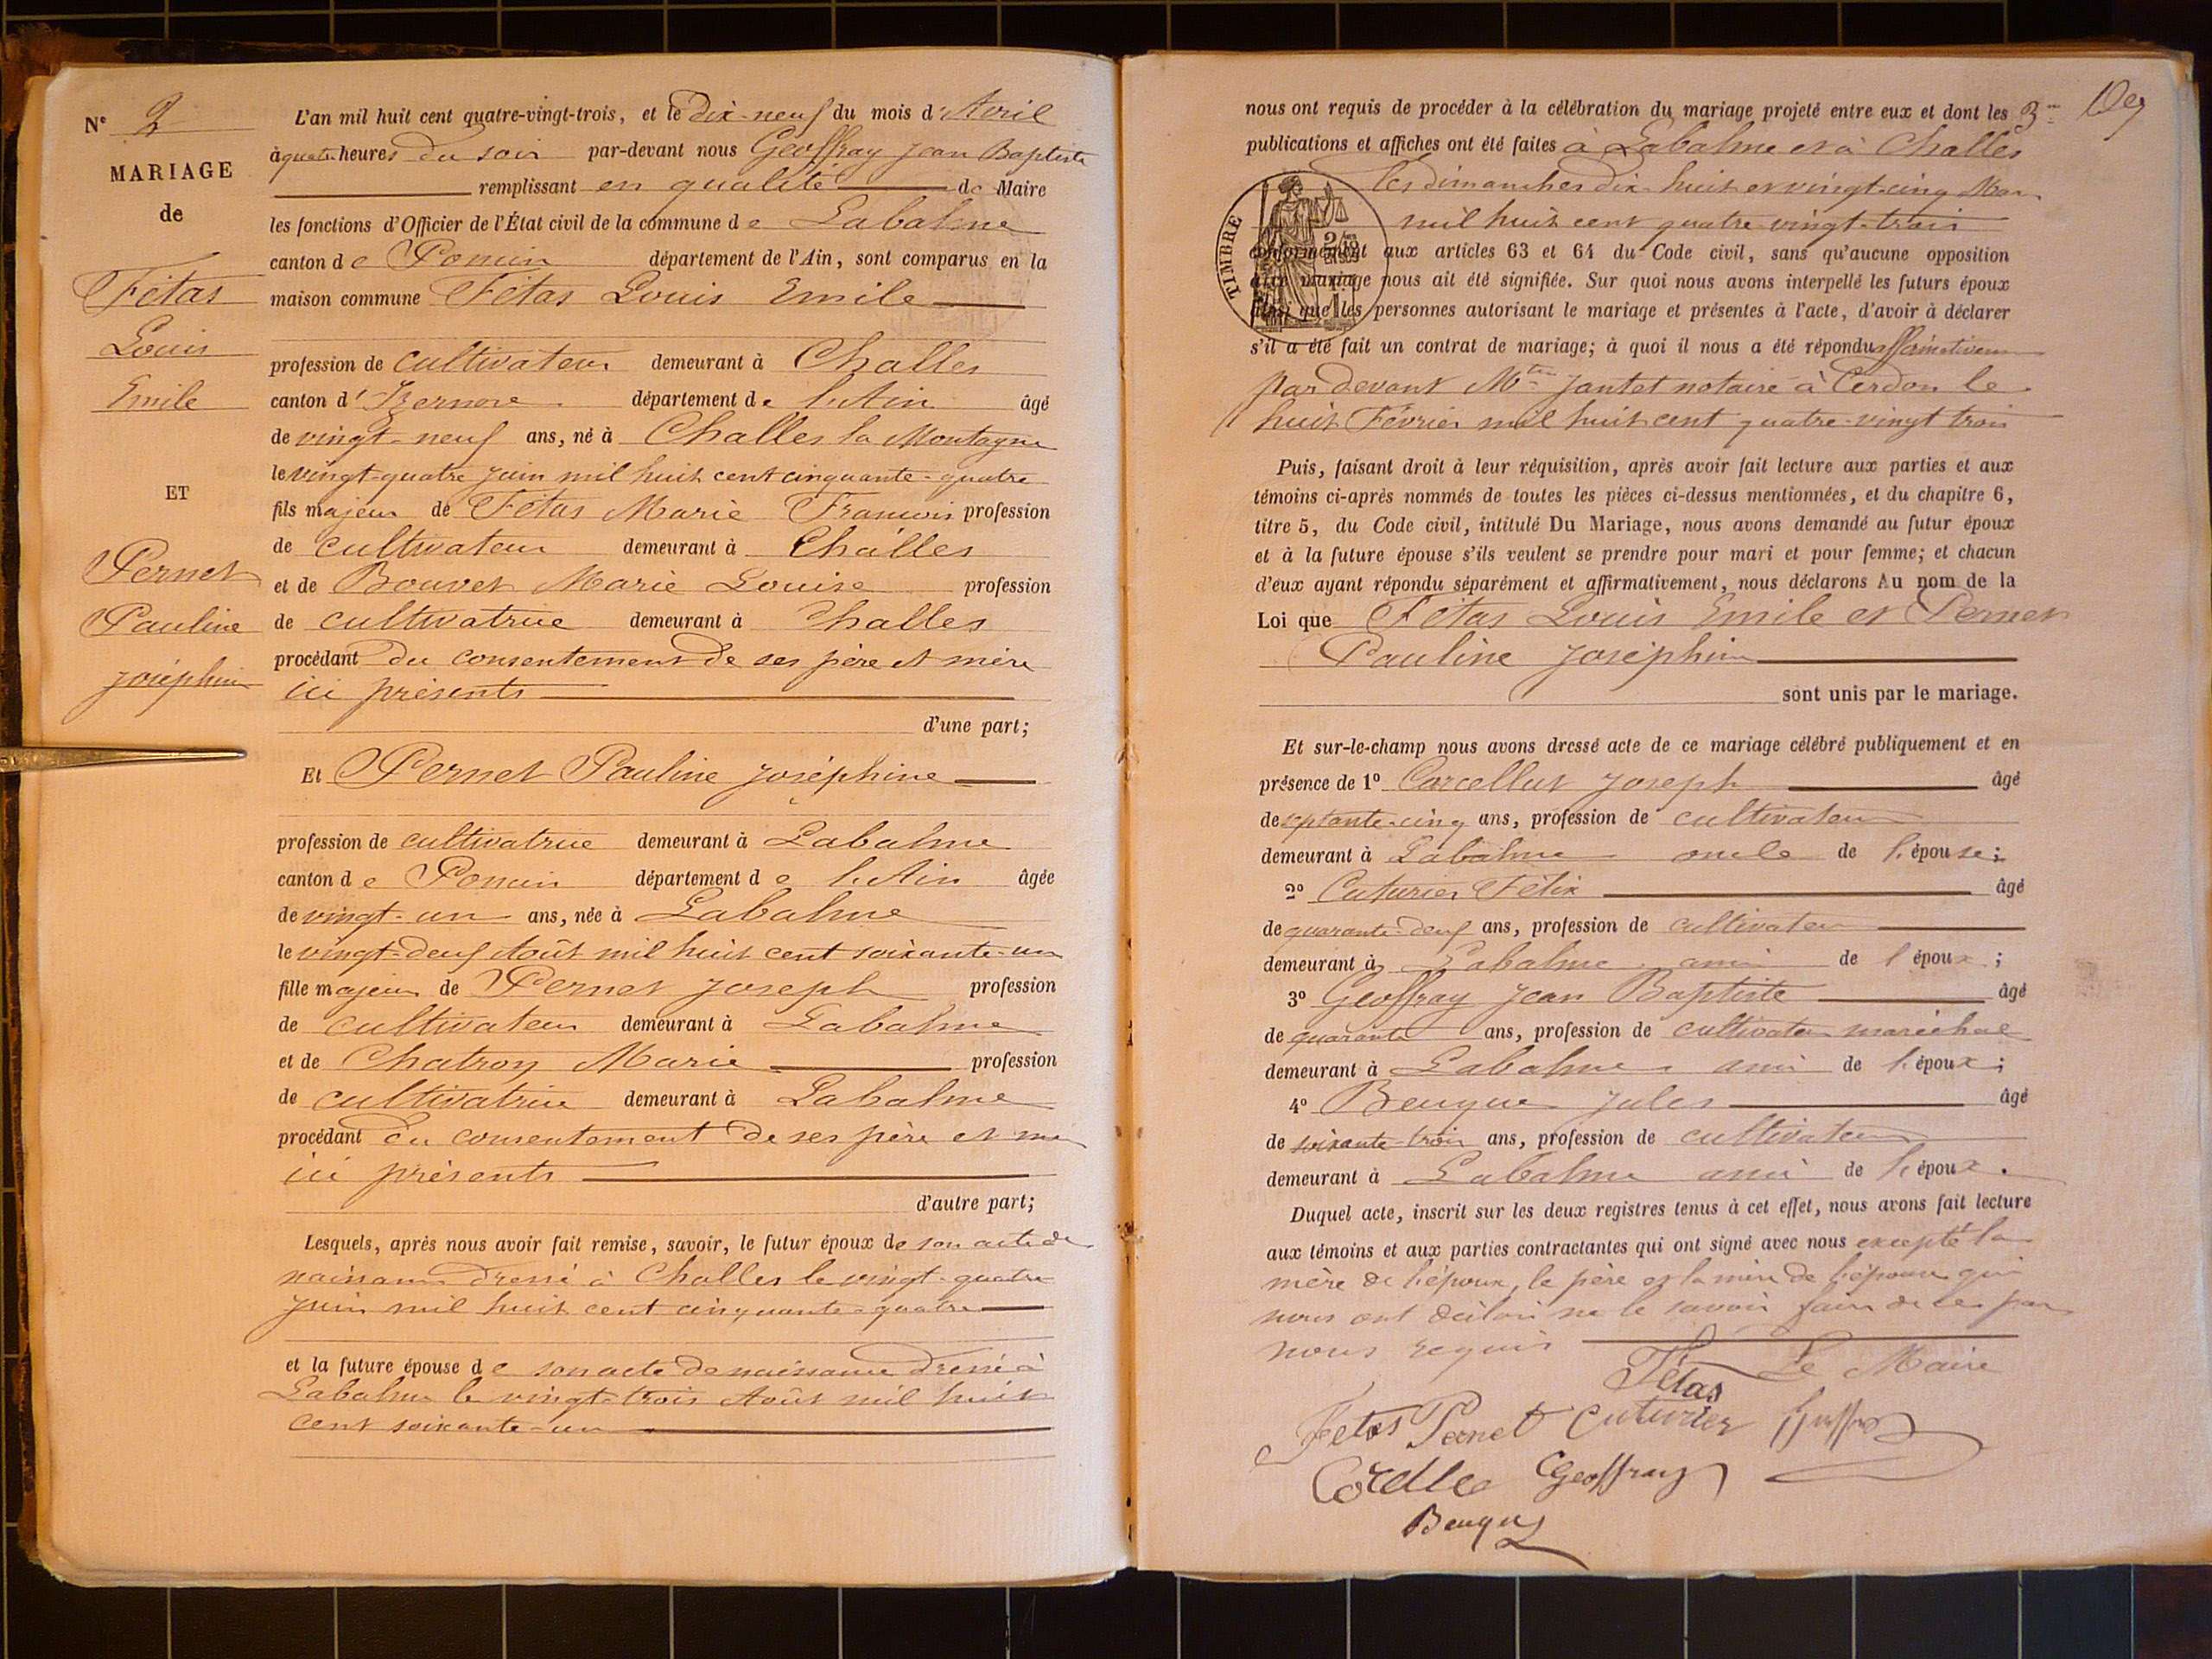 N° 2
MARIAGE
de
Fétas
Louis
Emile
ET
Pernet
Pauline
Joséphine
L'an mil huit cent quatre-vingt-trois, et le Dix-neuf du mois d'Avril
à quatre heures du soir par-devant nous Geoffray Jean Baptiste
remplissant en qualité de Maire
les fonctions d'Officier de l'État civil de la commune de Labalme
canton de Poncin département de l'Ain, sont comparus en la
maison commune Fétas Louis Emile
profession de cultivateur demeurant à Challes
canton d'Izernore département de l'Ain âgé
de vingt-neuf ans, né à Challes la Montagne
le vingt-quatre juin mil huit cent cinquante-quatre
fils majeur de Fétas Marie François profession
de cultivateur demeurant à Challes
et de Bouvet Marie Louise profession
de cultivatrice demeurant à Challes
procédant du consentement de ses père et mère
ici présents
d'une part;
Et Pernet Pauline Joséphine
profession de cultivatrice demeurant à Labalme
canton de Poncin département de l'Ain âgée
de vingt-un ans, née à Labalme
le vingt-deux Août mil huit cent soixante-un
fille majeure de Pernet Joseph profession
de cultivateur demeurant à Labalme
et de Chatron Marie profession
de cultivatrice demeurant à Labalme
procédant du consentement de ses père et mère
ici présents
d'autre part;
Lesquels, après nous avoir fait remise, savoir, le futur époux de son acte de
naissance dressé à Challes le vingt-quatre
juin mil huit cent cinquante-quatre
et la future épouse de son acte de naissance dressé à
Labalme le vingt-trois Août mil huit
cent soixante-un
nous ont requis de procéder à la célébration du mariage projeté entre eux et dont les
publications et affiches ont été faites à Labalme et à Challes
les dimanches dix-huit et vingt-cinq Mars
mil huit cent quatre-vingt-trois
TIMBRE
conformément aux articles 63 et 64 du Code civil, sans qu'aucune opposition
audit mariage nous ait été signifiée. Sur quoi nous avons interpellé les futurs époux
ainsi que les personnes autorisant le mariage et présentes à l'acte, d'avoir à déclarer
s'il a été fait un contrat de mariage; à quoi il nous a été répondu affirmativement
par devant Mtre Jantet notaire à Cerdon le
huit Février mil huit cent quatre-vingt trois
Puis, faisant droit à leur réquisition, après avoir fait lecture aux parties et aux
témoins ci-après nommés de toutes les pièces ci-dessus mentionnées, et du chapitre 6,
titre 5, du Code civil, intitulé Du Mariage, nous avons demandé au futur époux
et à la future épouse s'ils veulent se prendre pour mari et pour femme; et chacun
d'eux ayant répondu séparément et affirmativement, nous déclarons Au nom de la
Loi que Fétas Louis Emile et Pernet
Pauline Joséphine
sont unis par le mariage.
Et sur-le-champ nous avons dressé acte de ce mariage célébré publiquement et en
présence de 1° Joseph âgé
de septante-cinq ans, profession de cultivateur
demeurant à Labalme oncle de l'épouse;
2° Cuturier Félix âgé
de quarante-deux ans, profession de cultivateur
demeurant à Labalme ami de l'époux;
3° Geoffray Jean Baptiste âgé
de quarante ans, profession de cultivateur maréchal
demeurant à Labalme ami de l'époux;
4° Beugue Jules âgé
de soixante-trois ans, profession de cultivateur
demeurant à Labalme ami de l'époux.
Duquel acte, inscrit sur les deux registres tenus à cet effet, nous avons fait lecture
aux témoins et aux parties contractantes qui ont signé avec nous excepté la
mère de l'époux, le père et la mère de l'épouse qui
nous ont déclaré ne le savoir faire de ce par
nous requis
Le Maire
Fétas
Fetas Pernet Cuturier
Geoffray